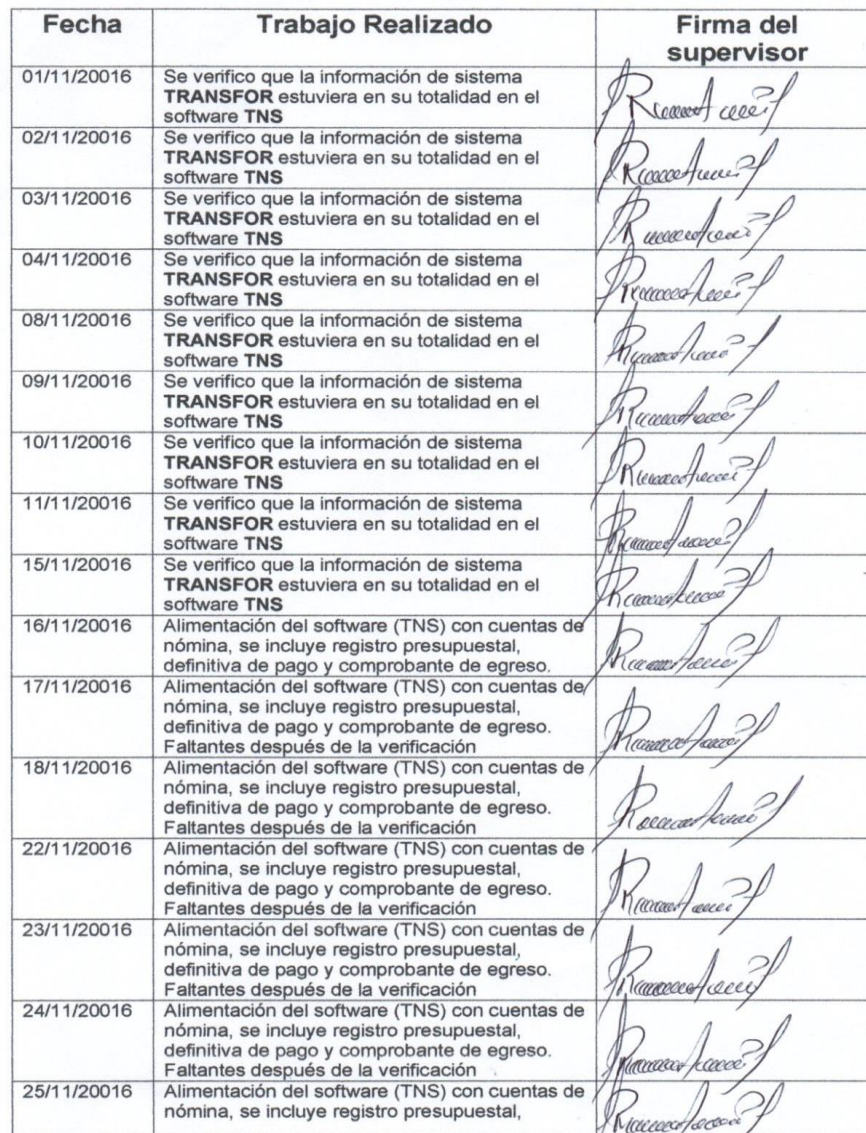 Fecha Trabajo Realizado Firma del
supervisor
01/11/20016 Se verifico que la información de sistema
TRANSFOR estuviera en su totalidad en el
software TNS
02/11/20016 Se verifico que la información de sistema
TRANSFOR estuviera en su totalidad en el
software TNS
03/11/20016 Se verifico que la información de sistema
TRANSFOR estuviera en su totalidad en el
software TNS
04/11/20016 Se verifico que la información de sistema
TRANSFOR estuviera en su totalidad en el
software TNS
08/11/20016 Se verifico que la información de sistema
TRANSFOR estuviera en su totalidad en el
software TNS
09/11/20016 Se verifico que la información de sistema
TRANSFOR estuviera en su totalidad en el
software TNS
10/11/20016 Se verifico que la información de sistema
TRANSFOR estuviera en su totalidad en el
software TNS
11/11/20016 Se verifico que la información de sistema
TRANSFOR estuviera en su totalidad en el
software TNS
15/11/20016 Se verifico que la información de sistema
TRANSFOR estuviera en su totalidad en el
software TNS
16/11/20016 Alimentación del software (TNS) con cuentas de
nómina, se incluye registro presupuestal,
definitiva de pago y comprobante de egreso.
17/11/20016 Alimentación del software (TNS) con cuentas de
nómina, se incluye registro presupuestal,
definitiva de pago y comprobante de egreso.
Faltantes después de la verificación
18/11/20016 Alimentación del software (TNS) con cuentas de
nómina, se incluye registro presupuestal,
definitiva de pago y comprobante de egreso.
Faltantes después de la verificación
22/11/20016 Alimentación del software (TNS) con cuentas de
nómina, se incluye registro presupuestal,
definitiva de pago y comprobante de egreso.
Faltantes después de la verificación
23/11/20016 Alimentación del software (TNS) con cuentas de
nómina, se incluye registro presupuestal,
definitiva de pago y comprobante de egreso.
Faltantes después de la verificación
24/11/20016 Alimentación del software (TNS) con cuentas de
nómina, se incluye registro presupuestal,
definitiva de pago y comprobante de egreso.
Faltantes después de la verificación
25/11/20016 Alimentación del software (TNS) con cuentas de
nómina, se incluye registro presupuestal,